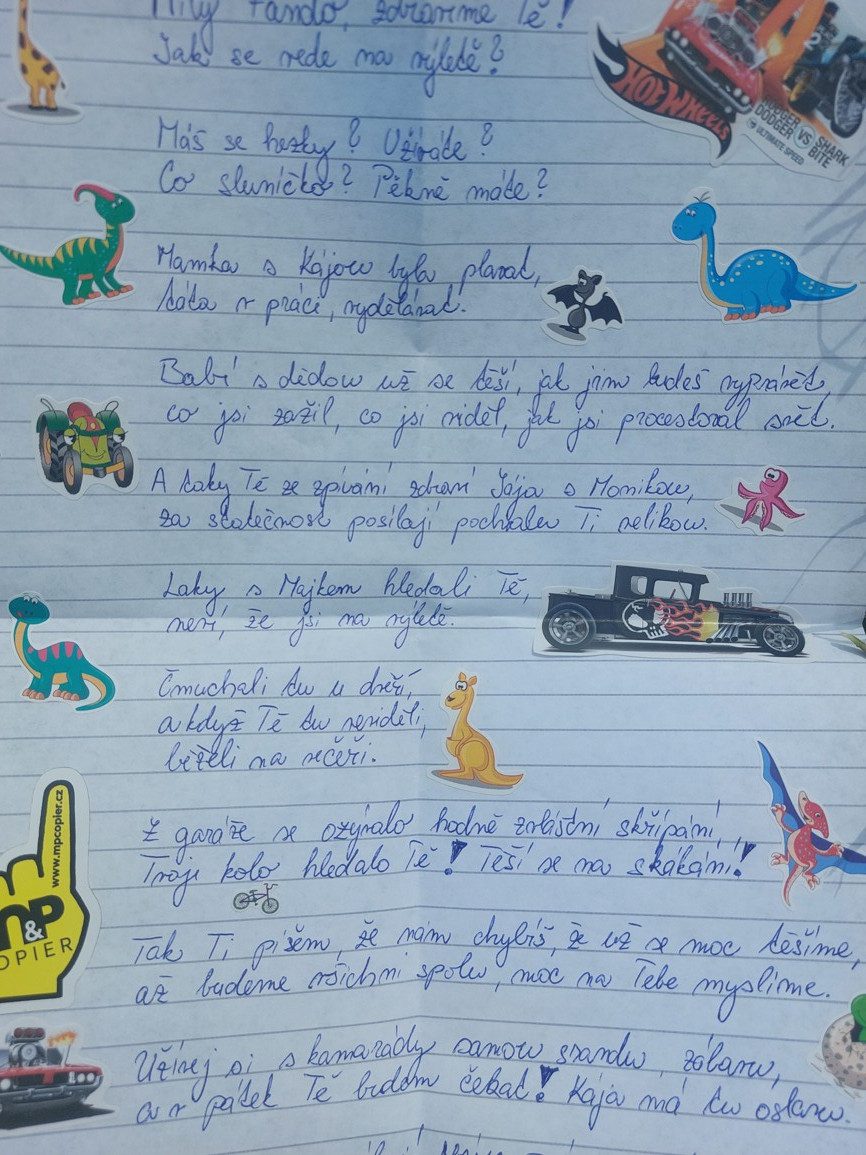 Milý Fando, zdravíme Tě!
Jak se vede na výletě?
HOT WHEELS
DODGER VS SHARK
BITE
ULTIMATE SPEED
Máš se hezky? Užíváte?
Co sluníčko? Pěkně máte?
Mamka s Kájou byla plavat,
táta v práci, vydělávat.
Babí s dědou už se těší, jak jim budeš vyprávět,
co jsi zažil, co jsi viděl, jak jsi procestoval svět.
A taky Tě ze zpívání zdraví Jája s Monikou,
za statečnost posílají pochvalu Ti velikou.
Laky s Majkem hledali Tě,
neví, že jsi na výletě.
Čmuchali tu u dveří,
a když Tě tu neviděli,
běželi na večeři.
Z garáže se ozývalo hodně zvláštní skřípání,
Tvoje kolo hledalo Tě! Těší se na skákání!
www.mpcopier.cz
M&P
COPIER
Tak Ti píšem, že nám chybíš, že už se moc těšíme,
až budeme všichni spolu, moc na Tebe myslíme.
Užívej si s kamarády samou srandu, zábavu,
a v pátek Tě budem čekat! Kája má tu oslavu.